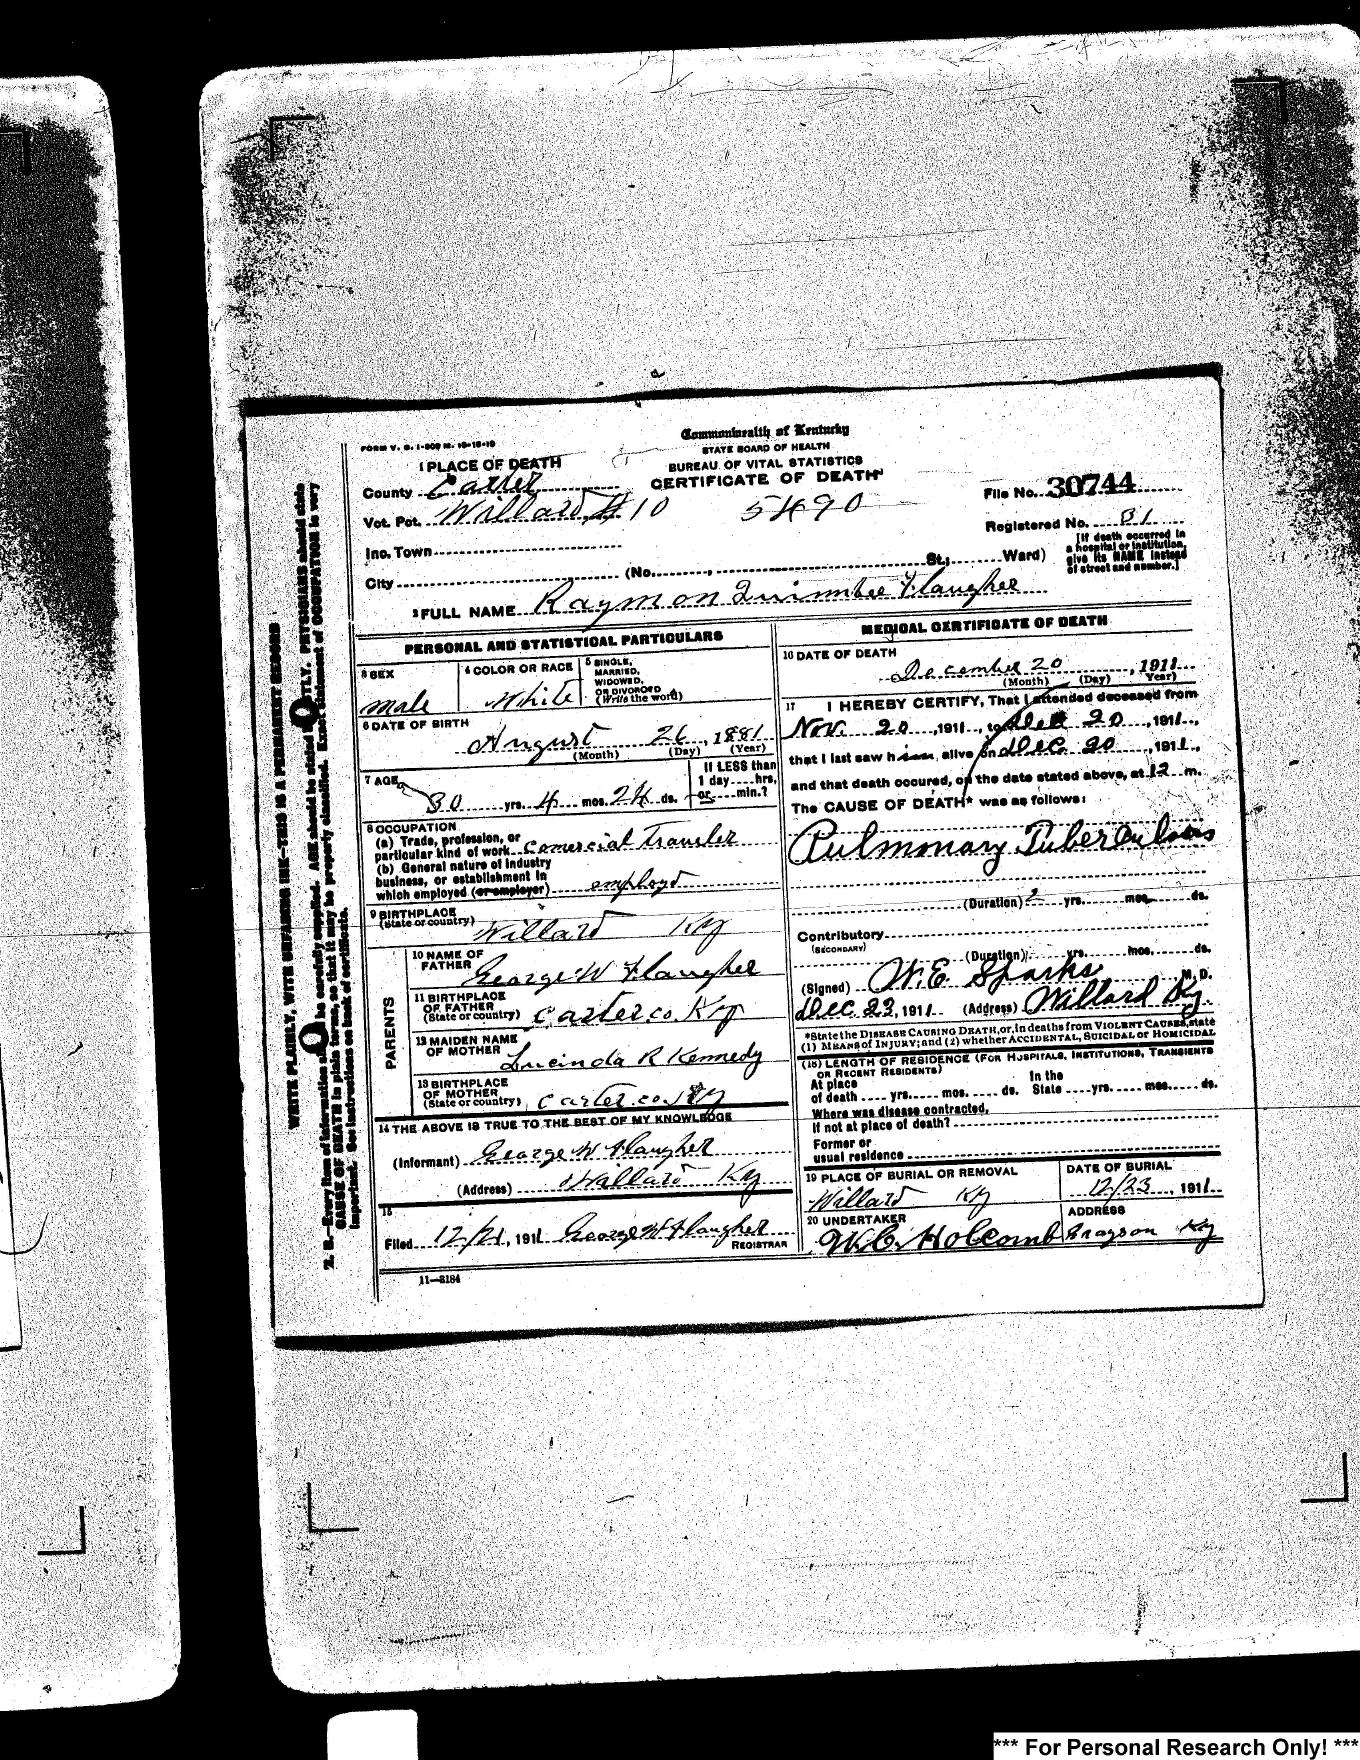 FORM V. S. 1-
Commonwealth of Kentucky
STATE BOARD OF HEALTH
BUREAU OF VITAL STATISTICS
CERTIFICATE OF DEATH
1 PLACE OF DEATH
County Carter
Vot. Pct. Willard #10 5490
Inc. Town
City (No. , St.; Ward)
File No. 30744
Registered No. 31
[If death occurred in
a hospital or institution,
give its NAME instead
of street and number.]
2 FULL NAME Raymon Quimbee Flaugher
PERSONAL AND STATISTICAL PARTICULARS
3 SEX
male
4 COLOR OR RACE
White
5 SINGLE,
MARRIED,
WIDOWED,
OR DIVORCED
(Write the word)
6 DATE OF BIRTH
August 26, 1881
(Month) (Day) (Year)
7 AGE
30 yrs. 4 mos. 24 ds.
If LESS than
1 day hrs.
or min.?
8 OCCUPATION
(a) Trade, profession, or
particular kind of work comercial Traveler
(b) General nature of industry
business, or establishment in
which employed (or employer) employd
9 BIRTHPLACE
(State or country) Willard Ky
PARENTS
10 NAME OF
FATHER George W Flaugher
11 BIRTHPLACE
OF FATHER
(State or country) Carter co. Ky
12 MAIDEN NAME
OF MOTHER Lucinda R Kennedy
13 BIRTHPLACE
OF MOTHER
(State or country) Carter co. Ky
14 THE ABOVE IS TRUE TO THE BEST OF MY KNOWLEDGE
(Informant) George W Flaugher
(Address) Willard Ky
15
Filed 12/21, 1911 George W Flaugher
REGISTRAR
11—3184
MEDICAL CERTIFICATE OF DEATH
16 DATE OF DEATH
December 20, 1911
(Month) (Day) Year)
17 I HEREBY CERTIFY, That I attended deceased from
Nov. 20, 1911, to Dec 20, 1911,
that I last saw him alive on Dec. 20, 1911,
and that death occured, on the date stated above, at 12 m.
The CAUSE OF DEATH* was as follows:
Pulmonary Tuberculosis
(Duration) 2 yrs. mos. ds.
Contributory
(SECONDARY)
(Duration) yrs. mos. ds.
(Signed) W.E. Sparks M. D.
Dec. 23, 1911 (Address) Willard Ky.
*State the DISEASE CAUSING DEATH, or, in deaths from VIOLENT CAUSES, state
(1) MEANS of INJURY; and (2) whether ACCIDENTAL, SUICIDAL or HOMICIDAL
(18) LENGTH OF RESIDENCE (FOR HOSPITALS, INSTITUTIONS, TRANSIENTS
OR RECENT RESIDENTS)
At place In the
of death yrs. mos. ds. State yrs. mos. ds.
Where was disease contracted,
If not at place of death?
Former or
usual residence
19 PLACE OF BURIAL OR REMOVAL
Willard Ky
DATE OF BURIAL
12/23, 1911
20 UNDERTAKER
W.C. Holcomb
ADDRESS
Grayson Ky
WRITE PLAINLY, WITH UNFADING INK—THIS IS A PERMANENT RECORD
N. B.—Every item of information be carefully supplied. AGE should be stated EXACTLY. PHYSICIANS should state
CAUSE OF DEATH in plain terms, so that it may be properly classified. Exact statement of OCCUPATION is very
important. See instructions on back of certificate.
*** For Personal Research Only! ***